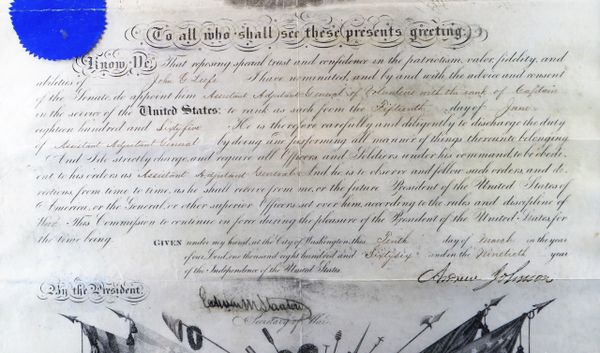 To all who shall see these presents greeting.
Know Ye, That reposing special trust and confidence in the patriotism, valor, fidelity, and
abilities of John C. I have nominated, and by and with the advice and consent
of the Senate, do appoint him Assistant Adjutant General of Volunteers with the rank of Captain
in the service of the United States: to rank as such from the Fifteenth day of June
eighteen hundred and Sixty five He is therefore carefully and diligently to discharge the duty
of Assistant Adjutant General by doing and performing all manner of things thereunto belonging.
And I do strictly charge, and require all Officers and Soldiers under his command, to be obedi-
ent to his orders as Assistant Adjutant General And he is to observe and follow such orders, and di-
rections from time to time, as he shall receive from me, or the future President of the United States of
America, or the General, or other superior Officers set over him, according to the rules and discipline of
War. This Commission to continue in force during the pleasure of the President of the United States, for
the time being.
GIVEN under my hand, at the City of Washington, this Tenth day of March in the year
of our Lord, one thousand eight hundred and Sixty six and in the Ninetieth year
of the Independence of the United States.
Andrew Johnson
By the President.
Edwin M Stanton
Secretary of War.